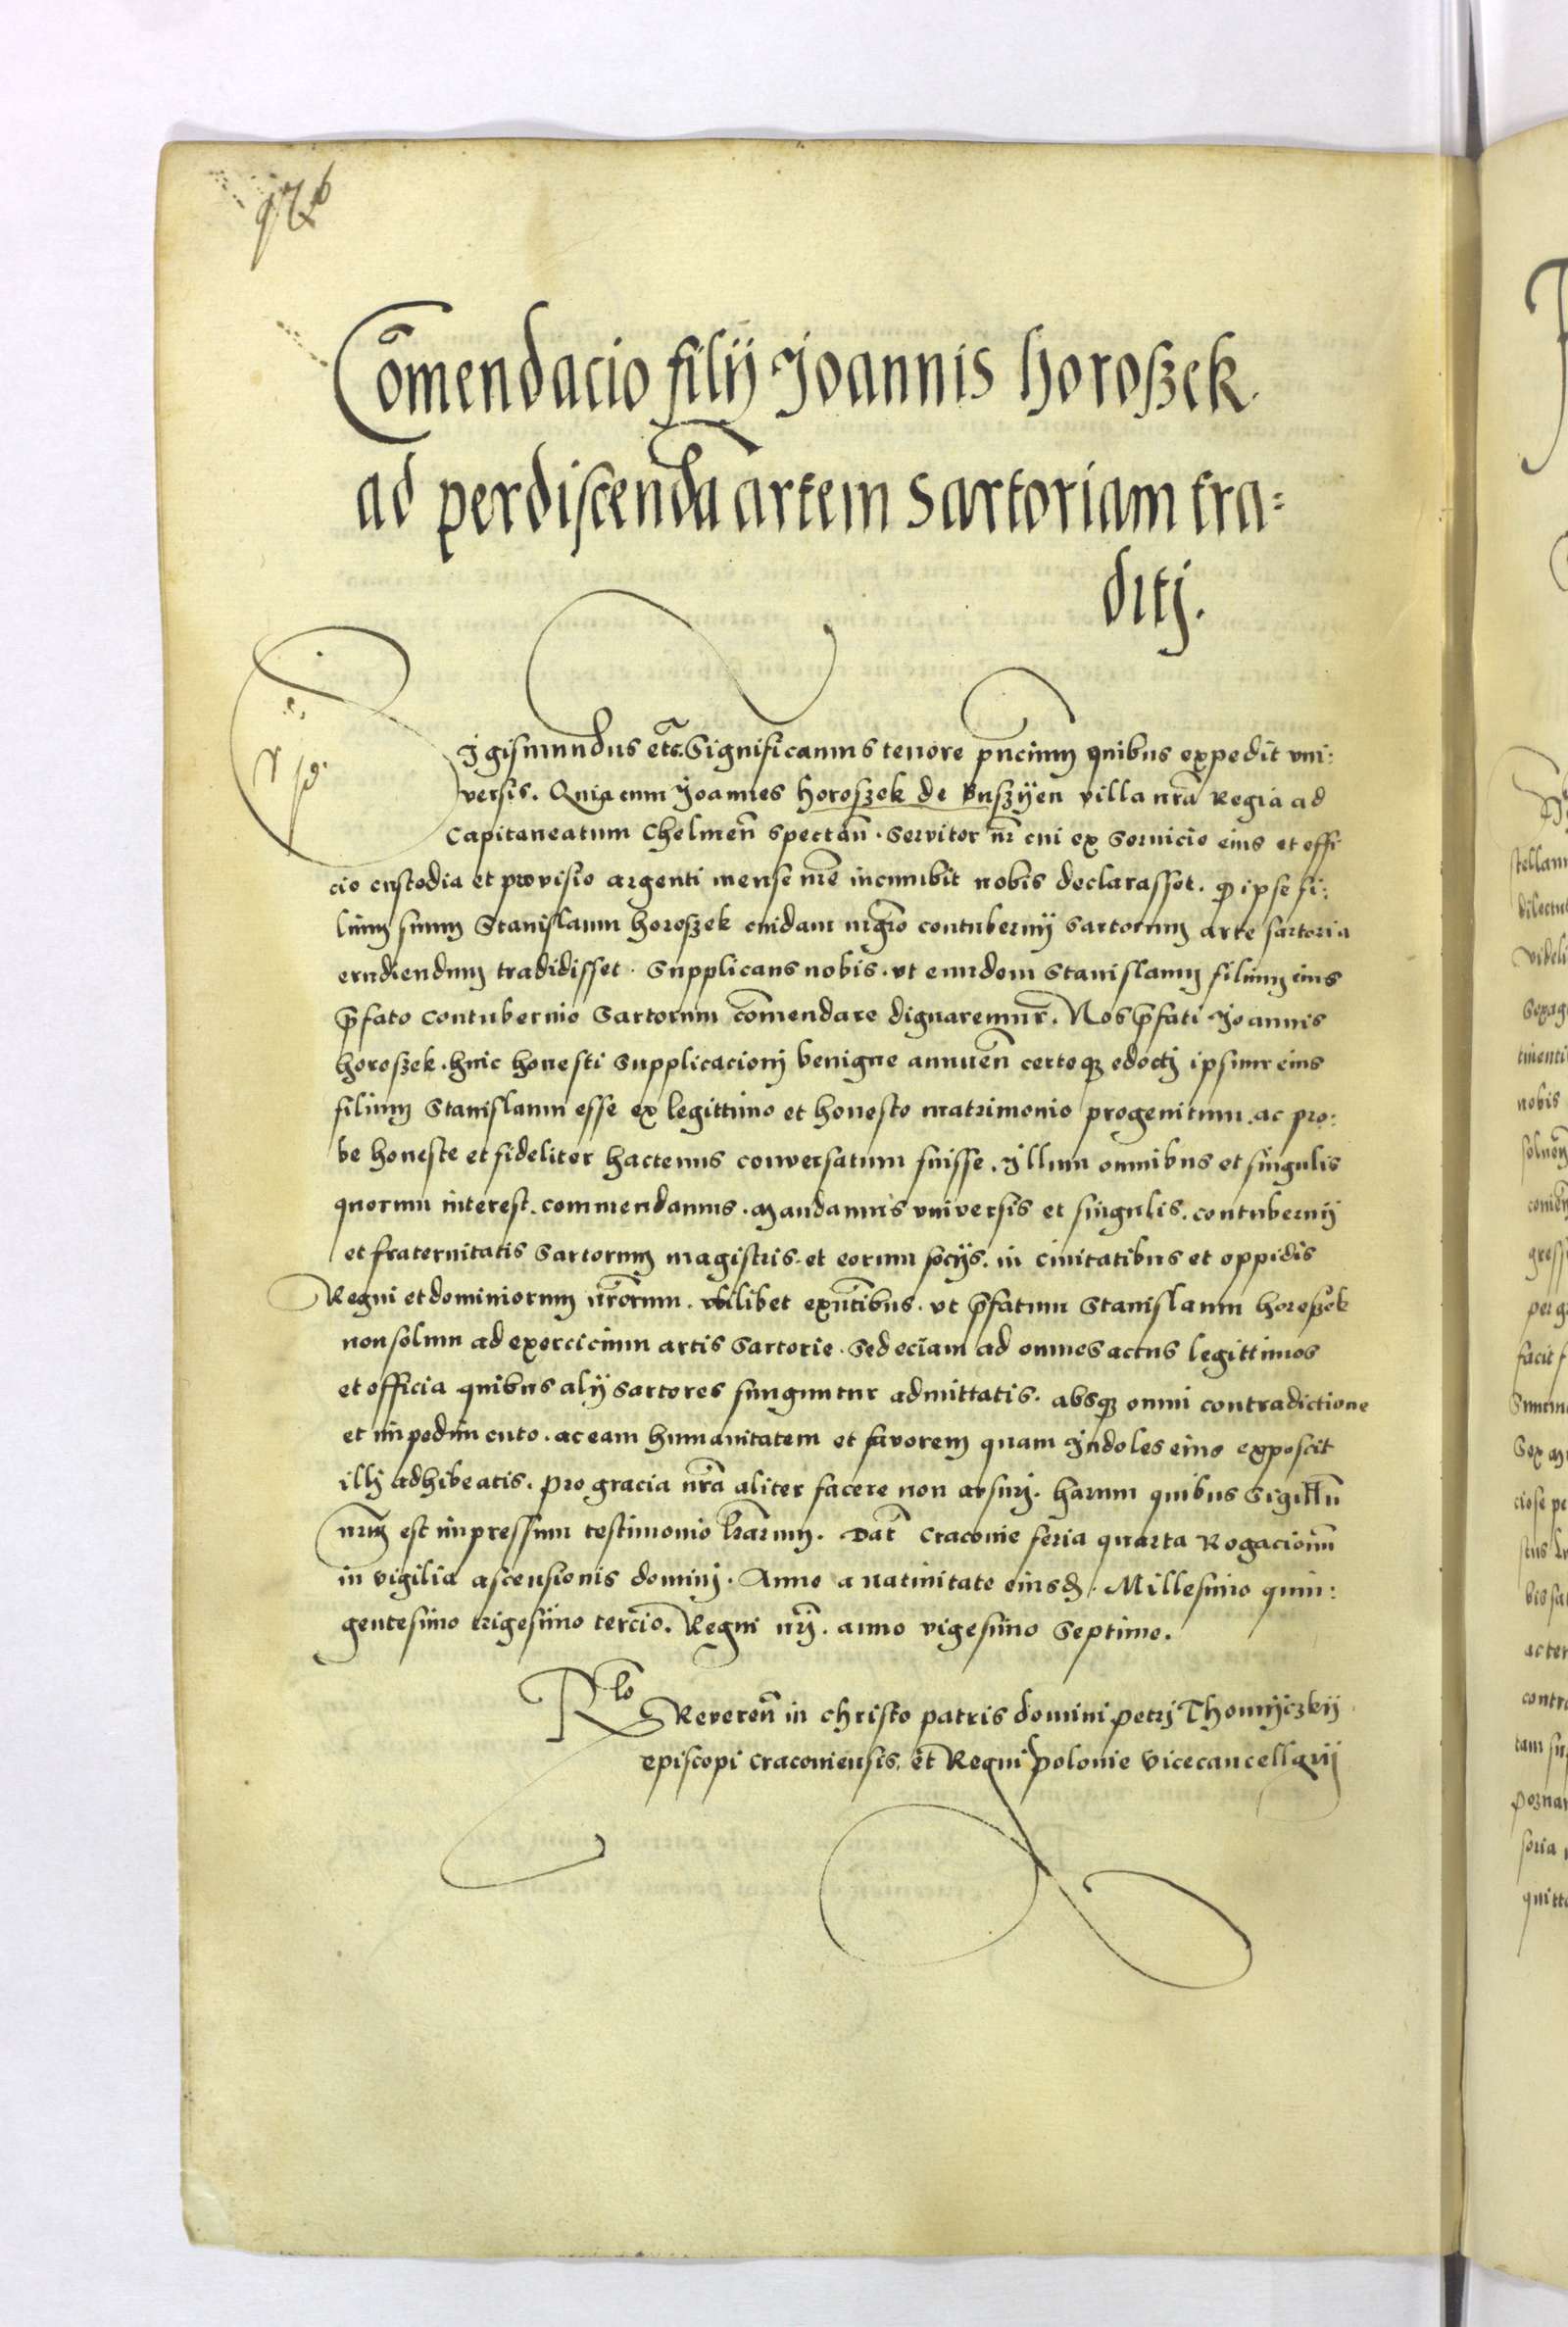 97b
Co̅mendacio filÿ Joannis Horoszek
ad perdiscenda̅ artem Sartoriam tra=
ditj.
Sigismundus etc̅. Significamus tenore pn̅cium quibus expedit vni:
versis. Quia cum Joannes Horoszek de Buszÿen villa nr̅a Regia ad
Capitaneatum Chelmen̅ spectan̅. Servitor nr̅ cui ex Servicio eius et offi
cio custodia et provisio argenti mense nr̅e incumbit nobis declarasset. qp ipse fi:
lium suum Stanislaum Horoszek cuidam mgr̅o contubernÿ Sartorum arte sartoria
erudiendum tradidisset. Supplicans nobis. vt eundem Stanislaum filium eius
p̅fato contubernio Sartorum co̅mendare dignaremur. Nos p̅fati Joannis
Horoszek. huic honesti Supplicacionj benigne annuen̅ certoq; edoctj ipsum eius
filium Stanislaum esse ex legittimo et honesto matrimonio progenitum. ac pro:
be honeste et fideliter hactenus conversatum fuisse. Illum omnibus et singulis
quorum interest. commendamus. Mandamus vniversis et singulis. contubernÿ
et fraternitatis Sartorum magistris. et eorum socÿs. in civitatibus et oppidis
Regni et dominiorum nr̅orum. vbilibet exn̅tibus. vt p̅fatum Stanislaum Horoszek
non solum ad exercicium artis Sartorie. Sed eciam ad omnes actus legittimos
et officia quibus alÿ Sartores funguntur admittatis. absq; omni contradictione
et impedimento. ac eam humanitatem et favorem quam Indoles eius exposcit
illj adhibeatis. pro gracia nr̅a aliter facere non ausurj. Harum quibus Sigillu̅
nr̅um est impressum testimonio lr̅arum. Dat̅ Cracovie feria quarta Rogacionu̅
in vigilia ascensionis dominj. Anno a nativitate eiusd. Millesimo quin:
gentesimo trigesimo tercio. Regni nr̅j. anno vigesimo Septimo.
R̅lo
Reveren̅ in christo patris domini petrj Thomÿczkÿ
episcopi Cracoviensis. et Regni Polonie Vicecancellarÿ